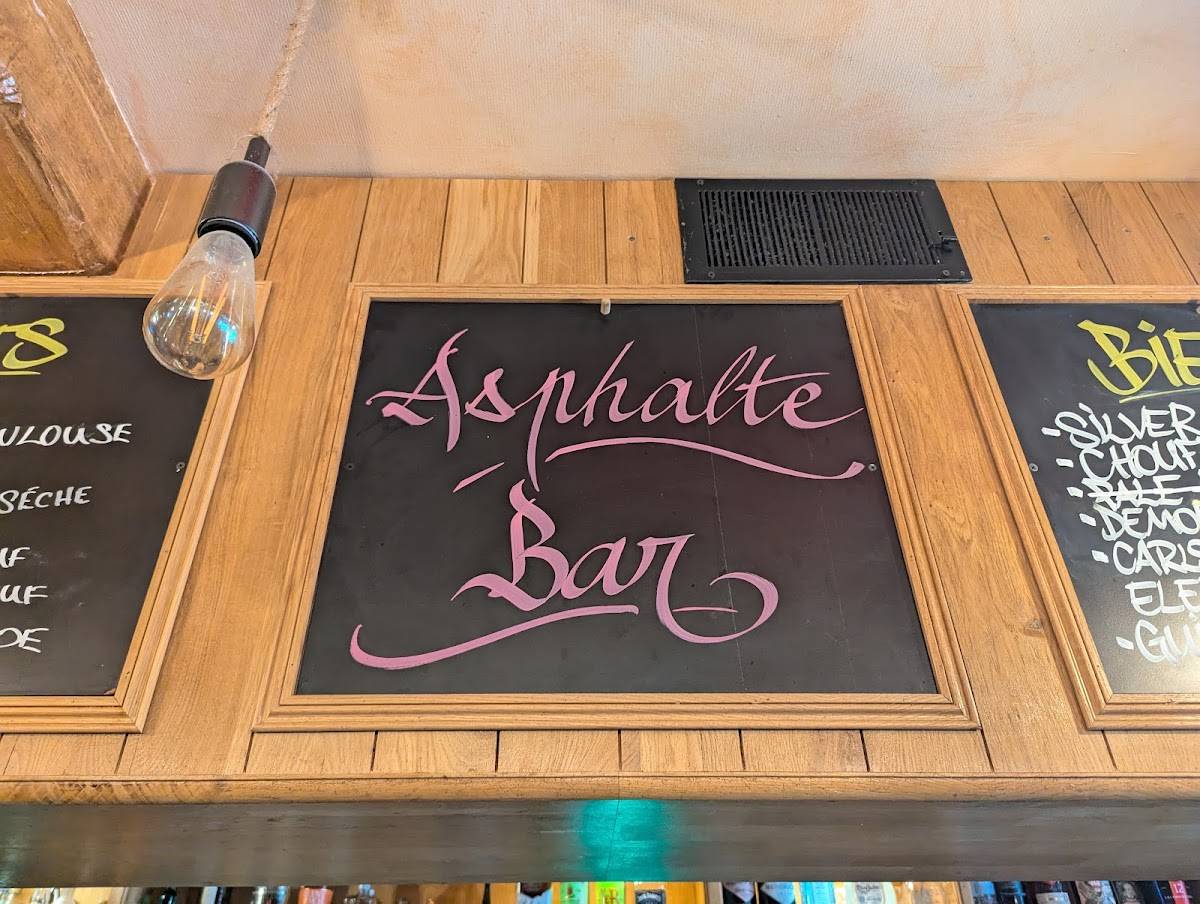 OULOUSE
SÉCHE
Asphalte
Bar
BIE
SILVER
CHOUF
PALE
DEMO
CARLS
ELE
GUI